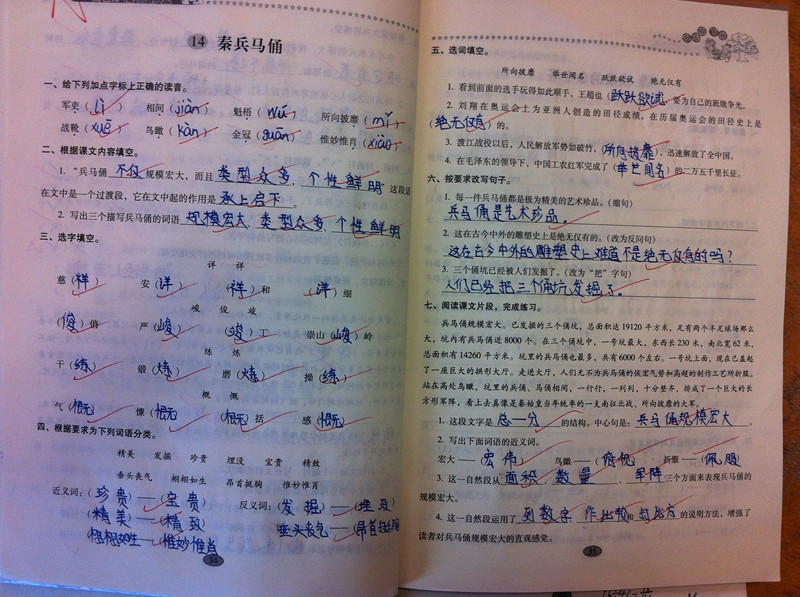 14 秦兵马俑
一、给下列加点字标上正确的读音。
军吏(lì) 相间(jiàn) 魁梧(wú) 所向披靡(mǐ)
战靴(xuē) 鸟瞰(kàn) 金冠(guān) 惟妙惟肖(xiào)
二、根据课文内容填空。
1. “兵马俑 不仅 规模宏大，而且 类型众多，个性鲜明 这段话
在文中是一个过渡段，它在文中起的作用是 承上启下。
2. 写出三个描写兵马俑的词语 规模宏大、类型众多 个性鲜明
三、选字填空。
详 祥
慈(祥) 安(详) (祥)和 (详)细
峻 俊 竣
(俊)俏 严(峻) (竣)工 崇山(峻)岭
练 炼
干(练) 锻(炼) 磨(炼) 操(练)
概 慨
气(概) 慷(慨) (概)括 感(慨)
四、根据要求为下列词语分类。
精美 发掘 珍贵 埋没 宝贵 精致
垂头丧气 栩栩如生 昂首挺胸 惟妙惟肖
近义词：(珍贵)——(宝贵) 反义词：(发掘)——(埋没)
(精美)——(精致) 垂头丧气——(昂首挺胸)
栩栩如生——惟妙惟肖
34
五、选词填空。
所向披靡 举世闻名 跃跃欲试 绝无仅有
1. 看到前面的选手玩得如此顺手，王超也(跃跃欲试)，要为自己的班级争光。
2. 刘翔在奥运会上为亚洲人创造的田径成绩，在历届奥运会的田径史上是
(绝无仅有)的。
3. 渡江战役以后，人民解放军势如破竹，(所向披靡)，迅速解放了全中国。
4. 在毛泽东的领导下，中国工农红军完成了(举世闻名)的二万五千里长征。
六、按要求改写句子。
1. 每一件兵马俑都是极为精美的艺术珍品。(缩句)
兵马俑是艺术珍品。
2. 这在古今中外的雕塑史上是绝无仅有的。(改为反问句)
这在古今中外的雕塑史上难道不是绝无仅有的吗？
3. 三个俑坑已经被人们发掘了。(改为“把”字句)
人们已经把三个俑坑发掘了。
七、阅读课文片段，完成练习。
兵马俑规模宏大。已发掘的三个俑坑，总面积达19120平方米，足有两个半足球场那么
大，坑内有兵马俑近8000个。在三个俑坑中，一号坑最大，东西长230米，南北宽62米，
总面积有14260平方米。坑里的兵马俑也最多，共有6000个左右。一号坑上面，现在已盖起
了一座巨大的拱形大厅。走进大厅，人们无不为兵马俑的恢宏气势和高超的制作工艺所折服。
站在高处鸟瞰，坑里的兵俑、马俑相间，一行行，一列列，十分整齐，排成了一个巨大的长
方形军阵，看上去真像是秦始皇当年统率的一支南征北战、所向披靡的大军。
1. 这段文字是 总—分 的结构。中心句是：兵马俑规模宏大。
2. 写出下面词语的近义词。
宏大——(宏伟) 鸟瞰——(俯视) 折服——(佩服)
3. 这一自然段从 面积、数量、军阵 三个方面来表现兵马俑的
规模宏大。
4. 这一自然段运用了 列数字 作比较 和 打比方 的说明方法，增强了
读者对兵马俑规模宏大的直观感觉。
35